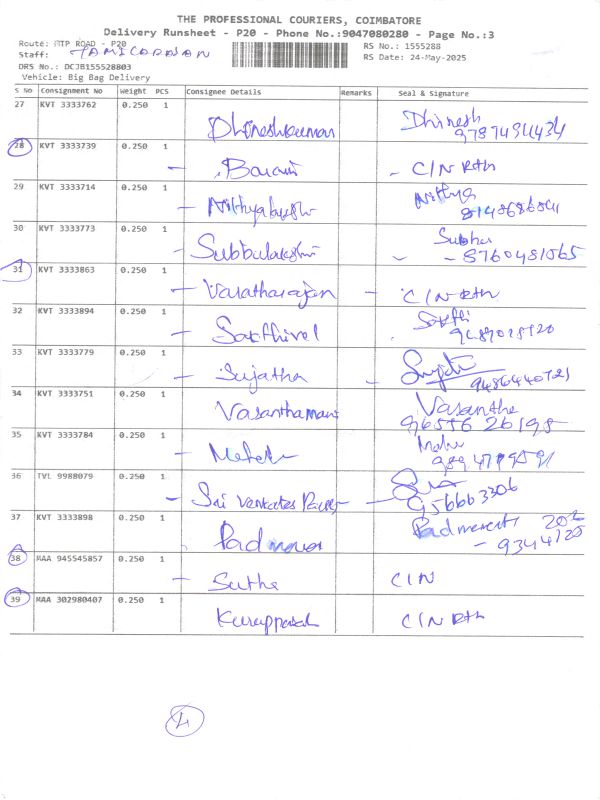 THE PROFESSIONAL COURIERS, COIMBATORE
Delivery Runsheet - P20 - Phone No.:9047080280 - Page No.:3
Route: MTP ROAD - P20
RS No.: 1555288
Staff: TAMILARASAN
RS Date: 24-May-2025
DRS No.: DCJB155528803
Vehicle: Big Bag Delivery
S No Consignment No Weight PCS Consignee Details Remarks Seal & Signature
27 KVT 3333762 0.250 1 Dhineshkumar Dhinesh
9787491434
28 KVT 3333739 0.250 1 - Barani - C/N Rth
29 KVT 3333714 0.250 1 - Nithya
30 KVT 3333773 0.250 1 - Subbulakshmi Subbu
- 8760481565
31 KVT 3333863 0.250 1 - Varatharajan - C/N Rth
32 KVT 3333894 0.250 1 - Sakthivel Sakthi
33 KVT 3333779 0.250 1 - Sujatha -
9486440721
34 KVT 3333751 0.250 1 Vasanthamani Vasantha
9655626198
35 KVT 3333784 0.250 1 -
36 TVL 9988079 0.250 1 - Sai Venkates -
9566663306
37 KVT 3333898 0.250 1
- 9344720
38 MAA 945545857 0.250 1 - Sutha C/N
39 MAA 302980407 0.250 1 C/N Rth
4